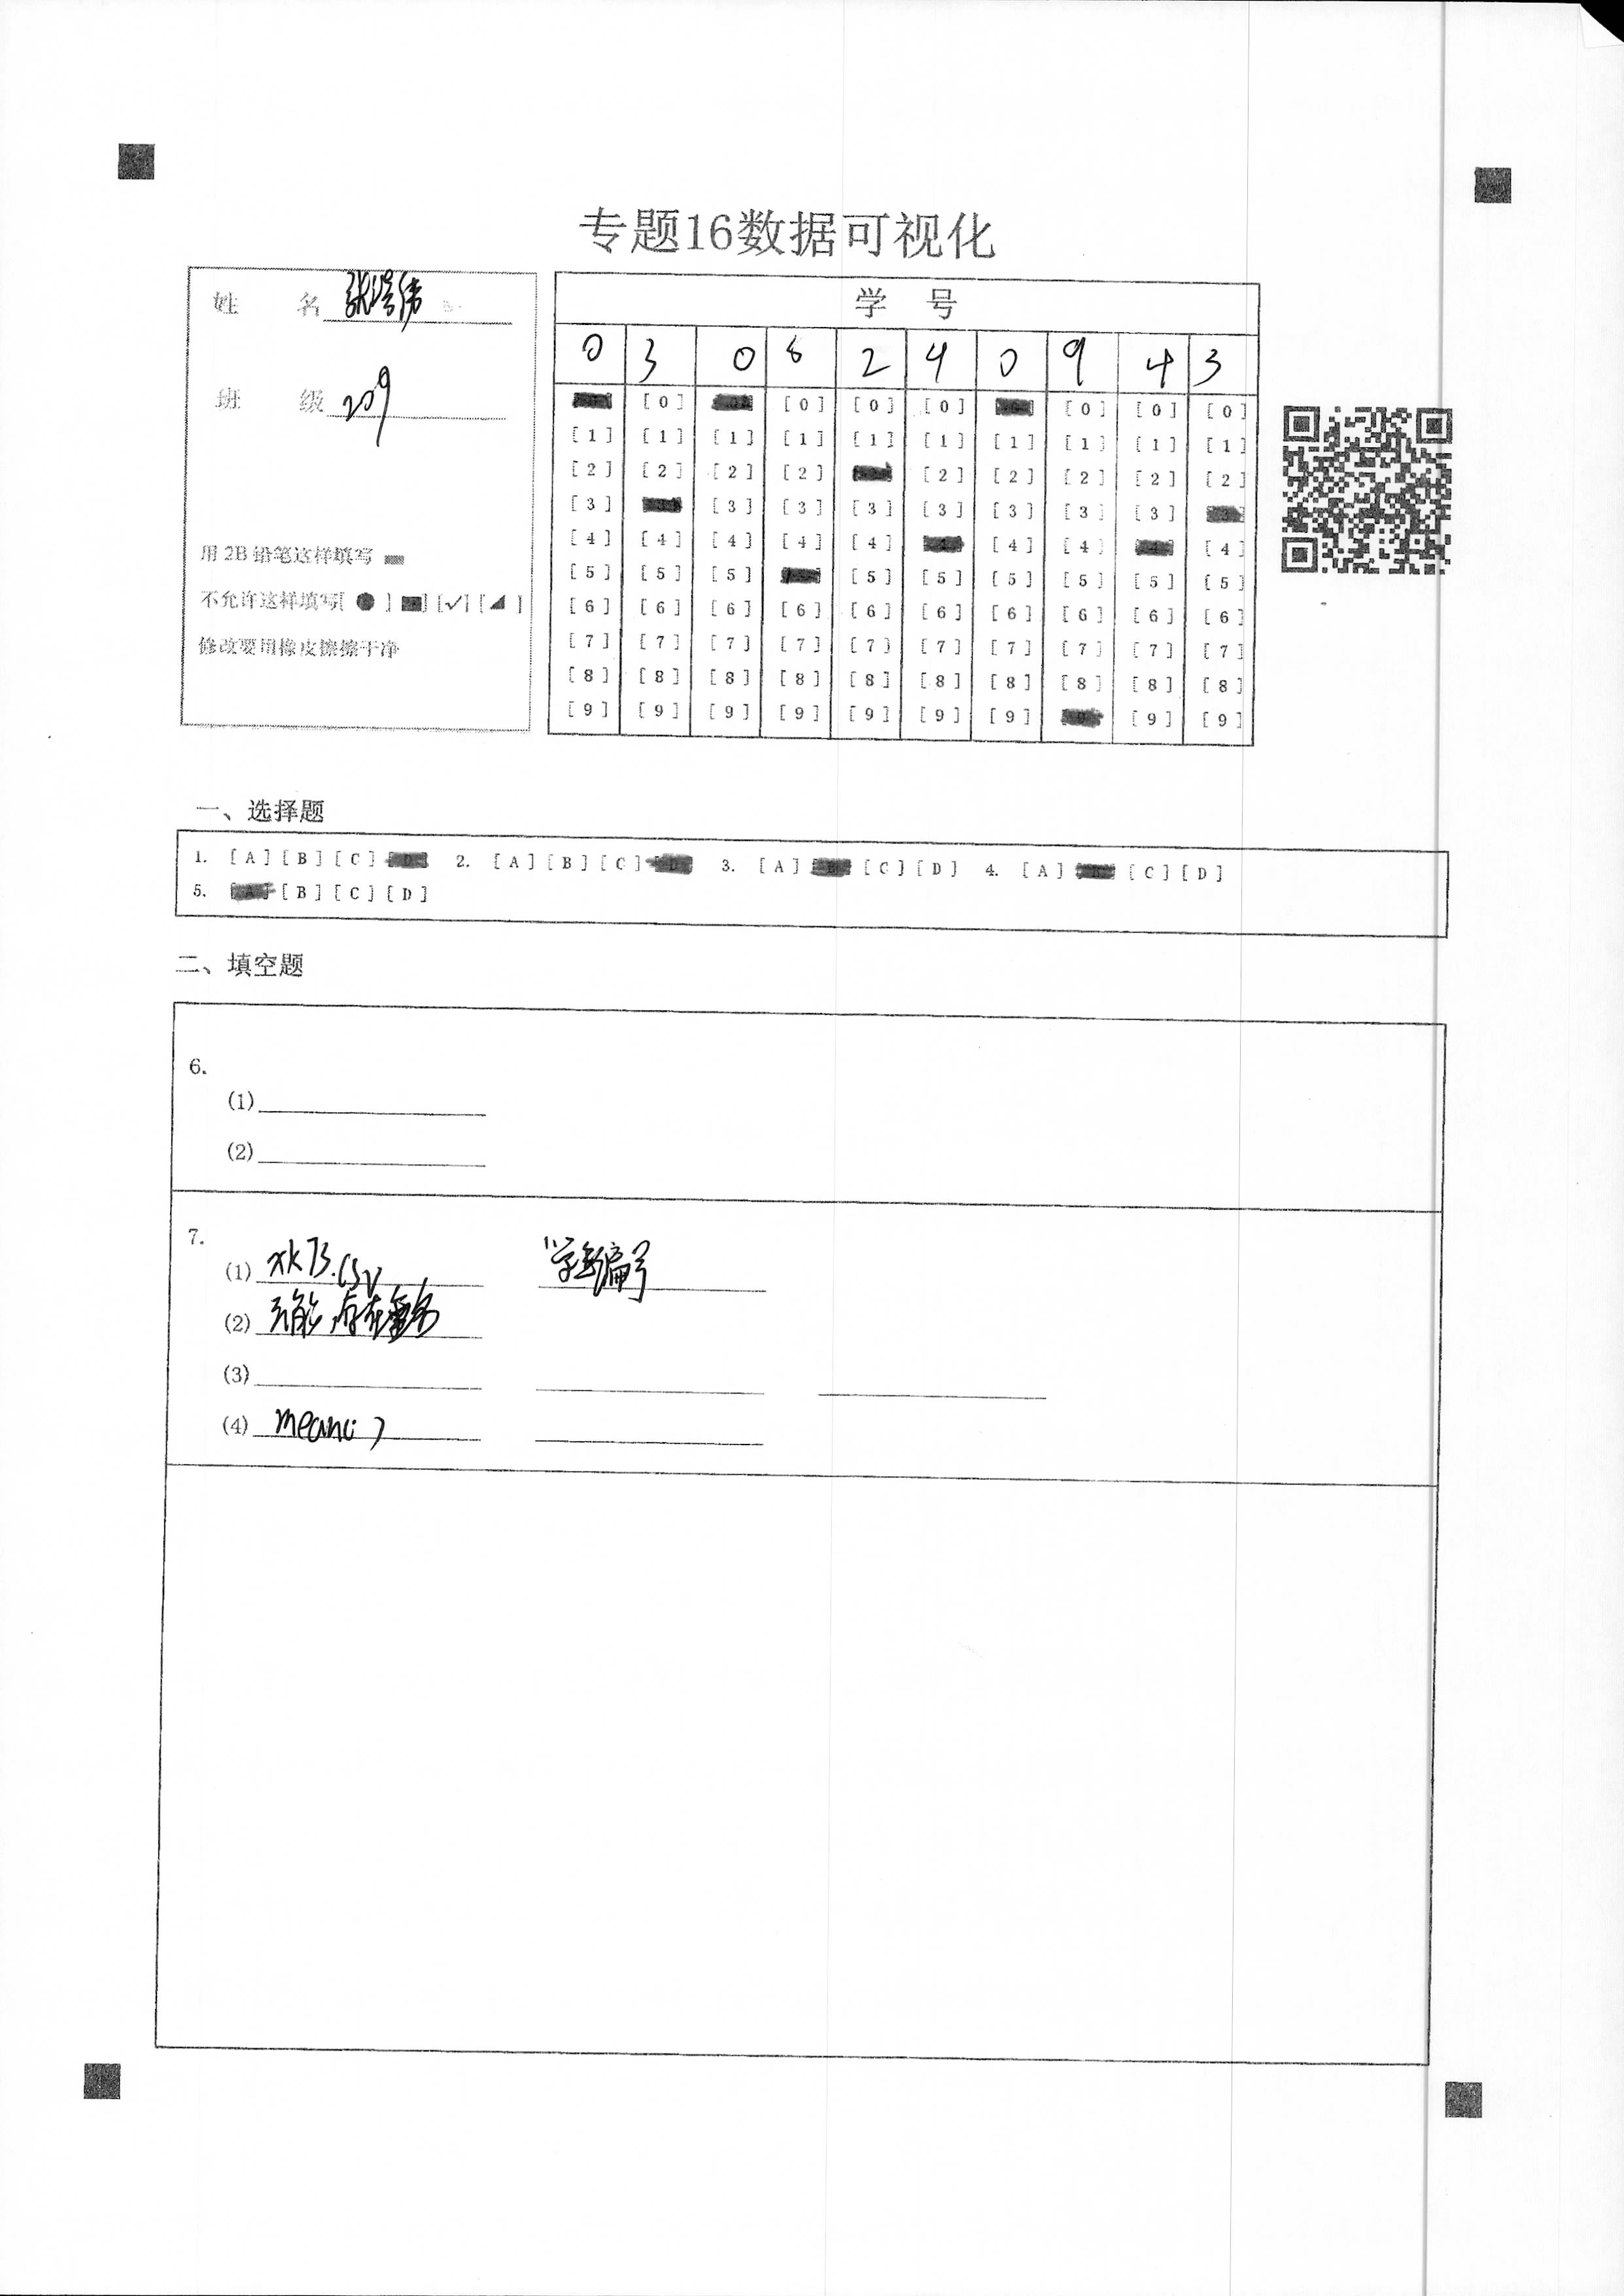 专题16数据可视化
姓 名 张浩伟
班 级 209
用 2B 铅笔这样填写
不允许这样填写[ ● ] [✓] [◢ ]
修改要用橡皮擦擦干净
学 号
0 3 0 8 2 4 0 9 4 3
[0] [0] [0] [0] [0] [0] [0]
[1] [1] [1] [1] [1] [1] [1] [1] [1] [1]
[2] [2] [2] [2] [2] [2] [2] [2] [2]
[3] [3] [3] [3] [3] [3] [3] [3]
[4] [4] [4] [4] [4] [4] [4] [4]
[5] [5] [5] [5] [5] [5] [5] [5] [5]
[6] [6] [6] [6] [6] [6] [6] [6] [6] [6]
[7] [7] [7] [7] [7] [7] [7] [7] [7] [7]
[8] [8] [8] [8] [8] [8] [8] [8] [8] [8]
[9] [9] [9] [9] [9] [9] [9] [9] [9]
一、选择题
1. [A] [B] [C] [D] 2. [A] [B] [C] [D] 3. [A] [B] [C] [D] 4. [A] [B] [C] [D]
5. [A] [B] [C] [D]
二、填空题
6.
(1)
(2)
7.
(1) xk73.csv "学生编号
(2) 可能存在重名
(3)
(4) mean()